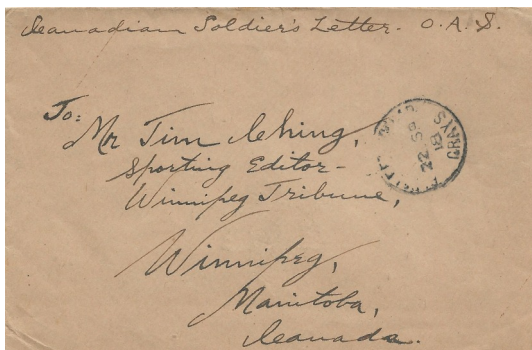 Canadian Soldier's Letter. O. A. S.
To:
Mr Tim Ching,
Sporting Editor -
Winnipeg Tribune,
Winnipeg,
Manitoba,
Canada.
GRAYS
22 SP
18